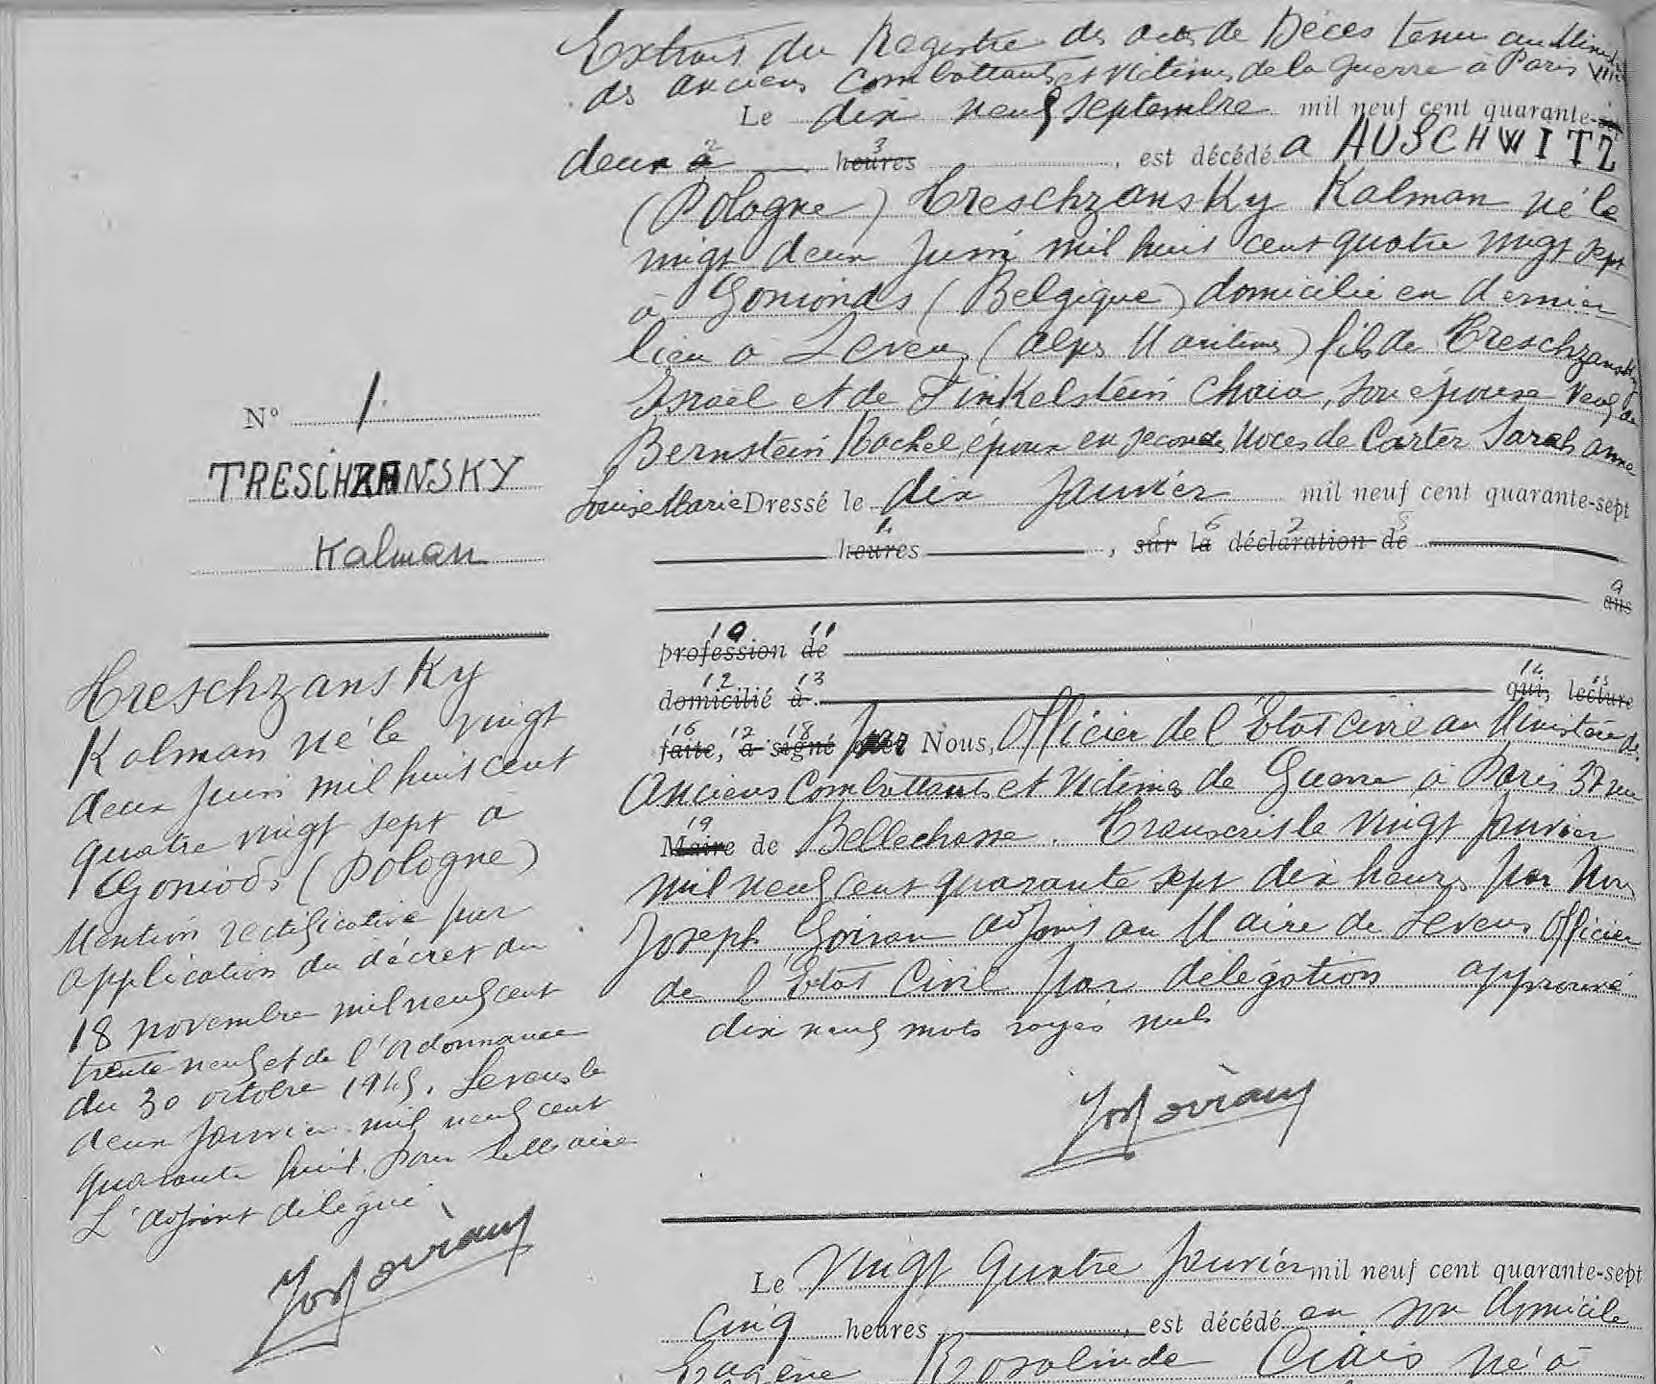 Extrait du Registre des actes de Décès tenu au Minist
des anciens combattants et victimes de la guerre à Paris VII
Le dix neuf septembre mil neuf cent quarante-
deux à heures , est décédé a AUSCHWITZ
(Pologne) Treschzansky Kalman né le
vingt deux juin mil huit cent quatre vingt sept
à Gonionds (Belgique) domicilié en dernier
lieu à Levens (Alpes Maritimes) fils de Treschzansky
Israël et de Finkelstein Chaia, son épouse veuf de
Bernstein Rachel, époux en secondes noces de Carter Sarah anne
Louise Marie Dressé le dix Janvier mil neuf cent quarante-sept
heures , sur la déclaration de
ans
profession de
domicilié à qui, lecture
faite, a signé par Nous, Officier de l'Etat civil au Ministère des
Anciens Combattants et Victimes de Guerre à Paris 37 rue
Maire de Bellechasse. Transcrit le vingt Janvier
mil neuf cent quarante sept dix heures par Nous
Joseph Goiran adjoint au Maire de Levens Officier
de l'Etat Civil par délégation approuvé
dix neuf mots rayés nuls
N° 1
TRESCHZANSKY
Kalman
Treschzansky
Kalman né le vingt
deux juin mil huit cent
quatre vingt sept à
Goniods (Pologne)
Mention rectificative par
application du décret du
18 novembre mil neuf cent
trente neuf et de l'ordonnance
du 30 octobre 1945. Levens le
deux Janvier mil neuf cent
quarante huit. Pour le Maire
L'adjoint délégué
Le Vingt Quatre Janvier mil neuf cent quarante-sept
Cinq heures , est décédé en son domicile
Eugène Rosalinde Ciais né à